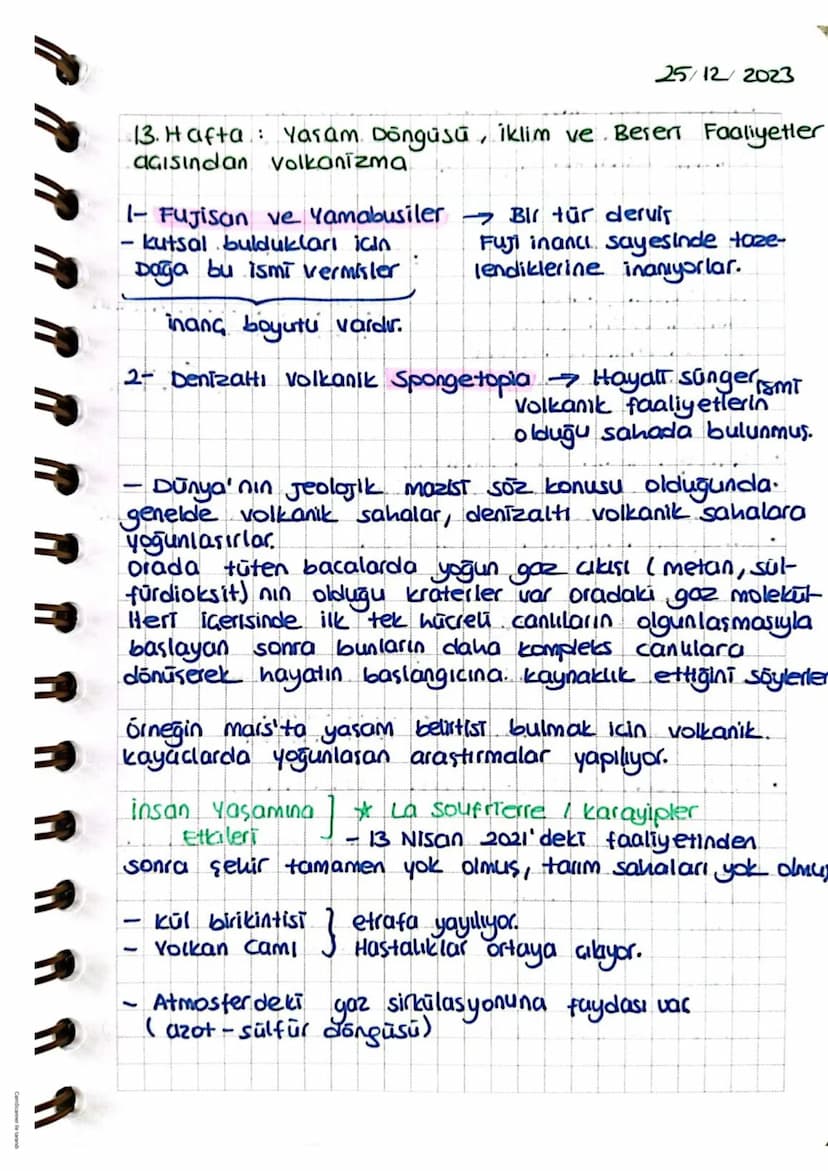 25/12/2023
13. Hafta : Yaşam Döngüsü, iklim ve Beşeri Faaliyetler
açısından volkanizma
1- Fujisan ve Yamabusiler → Bir tür derviş
- kutsal buldukları için Fuji inancı sayesinde taze-
Dağa bu ismi vermişler lendiklerine inanıyorlar.
inanç boyutu vardır.
2- Denizaltı volkanik Spongetopia → Hayalt sünger ismi
volkanik faaliyetlerin
olduğu sahada bulunmuş.
- Dünya'nın jeolojik mazisi söz konusu olduğunda.
genelde volkanik sahalar, denizaltı volkanik sahalara
yoğunlaşırlar.
orada tüten bacalarda yoğun gaz çıkışı (metan, sül-
fürdioksit) nın olduğu kraterler var oradaki gaz molekül-
lleri içerisinde ilk tek hücreli canlıların olgunlaşmasıyla
başlayan sonra bunların daha kompleks canlılara
dönüşerek hayatın başlangıcına kaynaklık ettiğini söylerler
örneğin mars'ta yaşam belirtisi bulmak için volkanik.
kayaçlarda yoğunlaşan araştırmalar yapılıyor.
insan Yaşamına ] ★ La Soufrierre / Karayipler
Etkileri - 13 Nisan 2021'deki faaliyetinden
sonra şehir tamamen yok olmuş, tarım sahaları yok olmuş
- kül birikintisi } etrafa yayılıyor.
- Volkan Camı } Hastalıklar ortaya çıkıyor.
- Atmosferdeki gaz sirkülasyonuna faydası var
(azot-sülfür döngüsü)
CamScanner ile tarandı